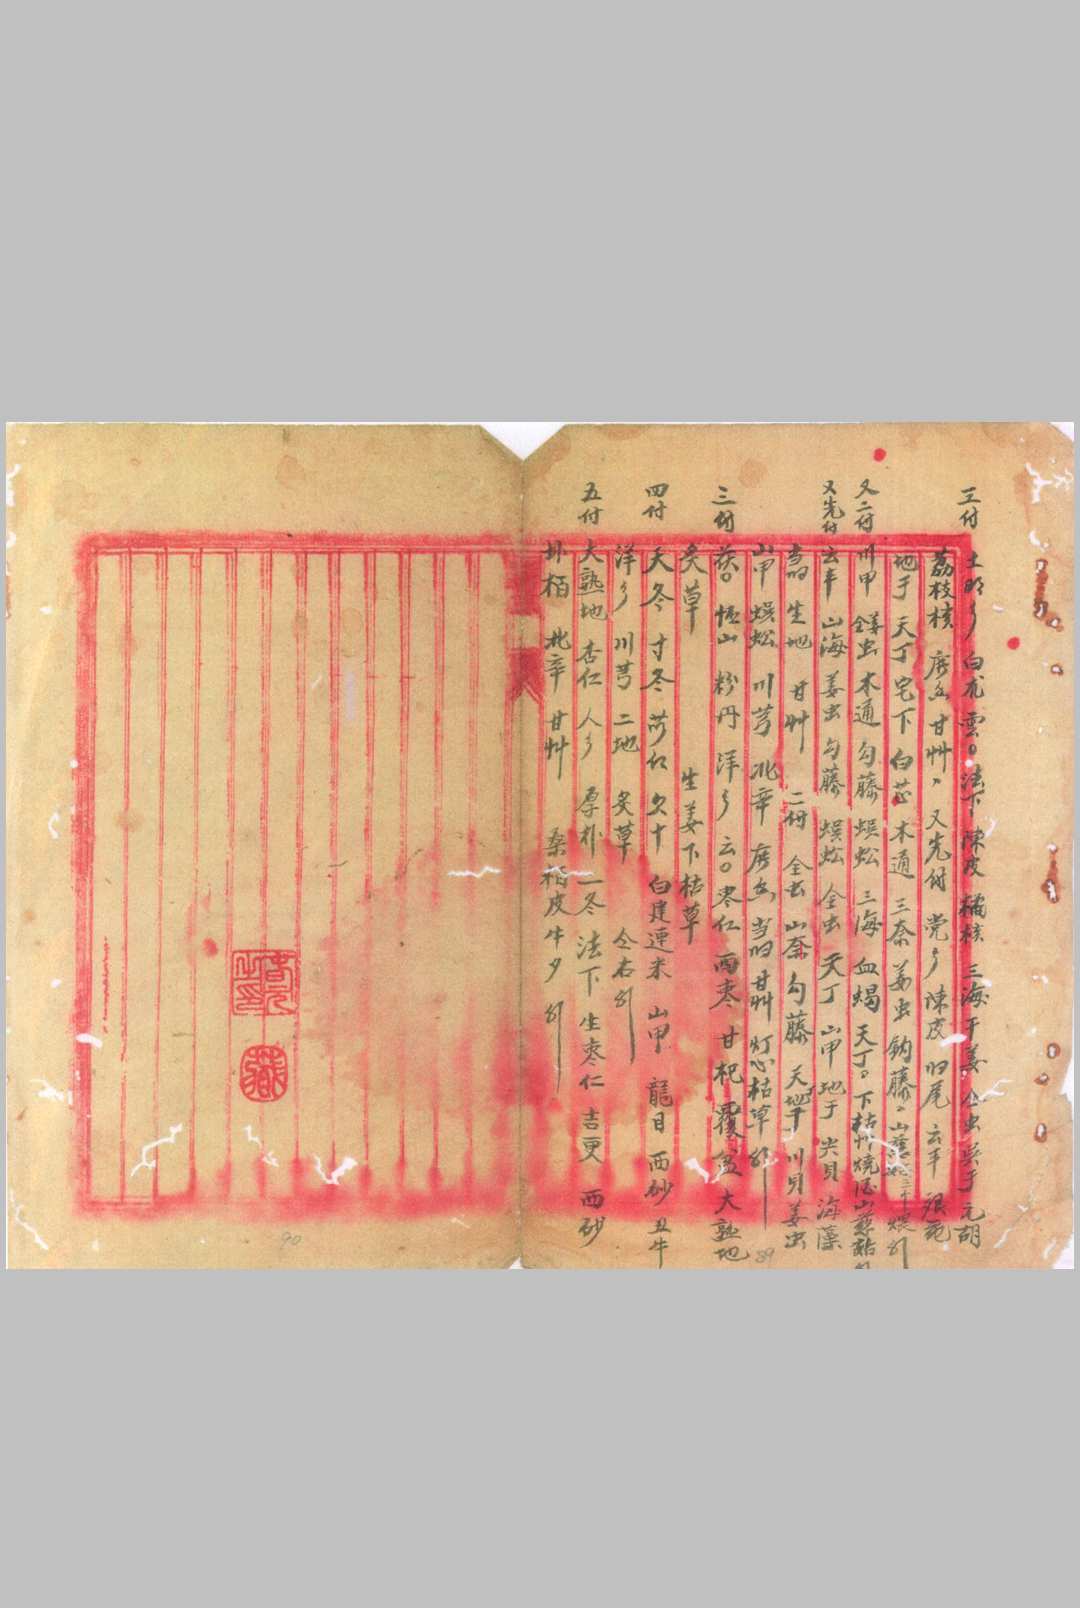 三付 土明彡 白朮 雲○ 法下 陳皮 橘核 三海 干姜 仝虫 吴于 元胡
荔枝核 唐幺 甘艸、又先付 党彡 陳皮 归尾 云丰
地于 天丁 宅下 白芷 木通 三奈 姜虫 鈎藤、山
又二付 川甲 姜虫 木通 勾藤 蜈蚣 三海 血蝎 天丁、下枯艸 燒酒
又先付 云丰 山海 姜虫 勾藤 蜈蚣 全虫 天丁 山甲 地于 尖貝 海藻
当归 生地 甘艸 二付 全虫 山奈 勾藤 天地于 川貝 姜虫
山甲 蜈蚣 川芎 北辛 唐幺 当归 甘艸 灯心 枯草
三付 茯○ 恒山 粉丹 洋彡 云○ 枣仁 西枣 甘杞 覆盆 大熟地
炙草 生姜 下枯草
四付 天冬 寸冬 芍红 欠十 白建連米 山甲 龍目 西砂 丑牛
洋彡 川芎 二地 炙草 仝右引
五付 大熟地 杏仁 人彡 厚朴 二冬 法下 生枣仁 吉更 西砂
卦栢 北辛 甘艸 桑栢皮 牛夕 引
89
90